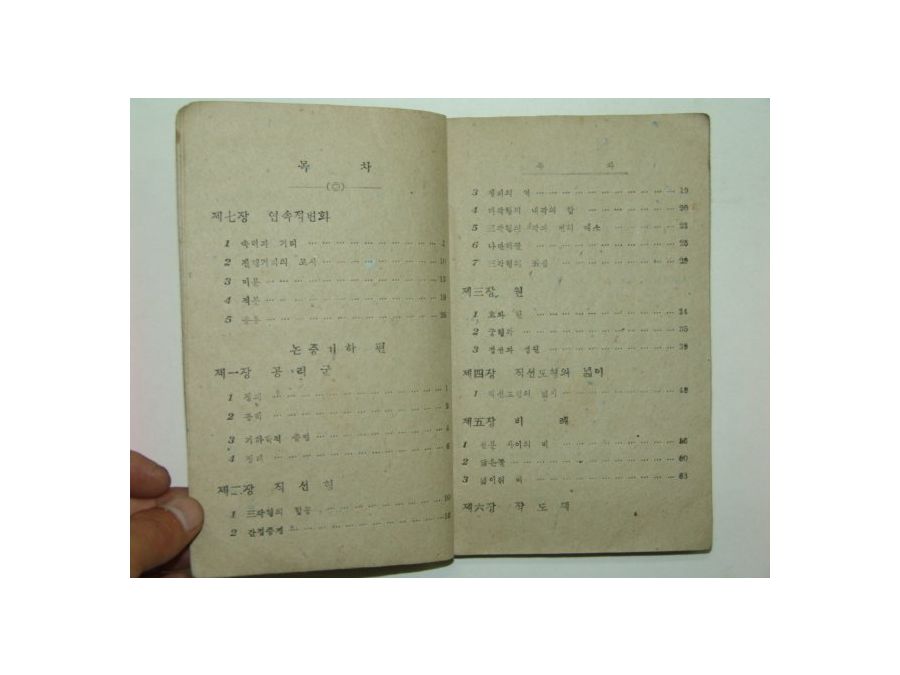 목 차
제七장 연속적변화
1 속력과 거리
2 진행거리의 표시 10
3 미분 13
4 적분 19
5 응용
논증기하 편
제一장 공 리 군
1 정의 1
2 공리
3 기하학적 증명 4
4 정리 6
제二장 직 선 형
1 三각형의 합동 10
2 간접증명
목 차
3 정리의 역 19
4 다각형의 내각의 합 20
5 三각형의 각과 변의 대소 23
6 나란히꼴 25
7 三각형의 五심 28
제三장 원
1 호와 현 34
2 궁형각 35
3 접선과 접원 38
제四장 직선도형의 넓이
1 직선도형의 넓이 48
제五장 비 례
1 선분 사이의 비 56
2 닮은꼴 60
3 넓이의 비 63
제六장 작 도 제